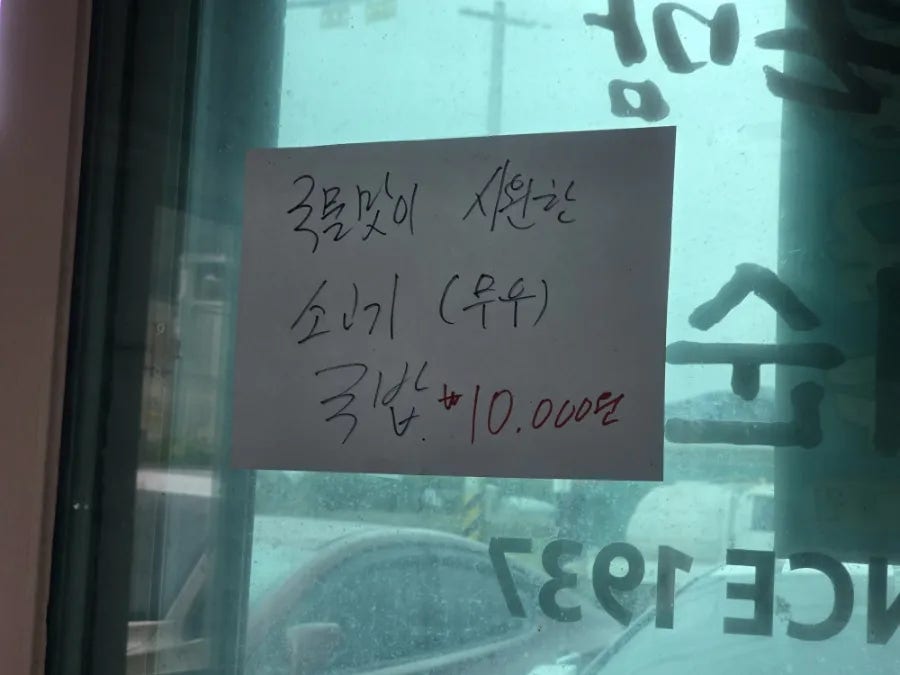 국물맛이 시원한
소고기 (무우)
국밥 ₩10.000원
SINCE 1937